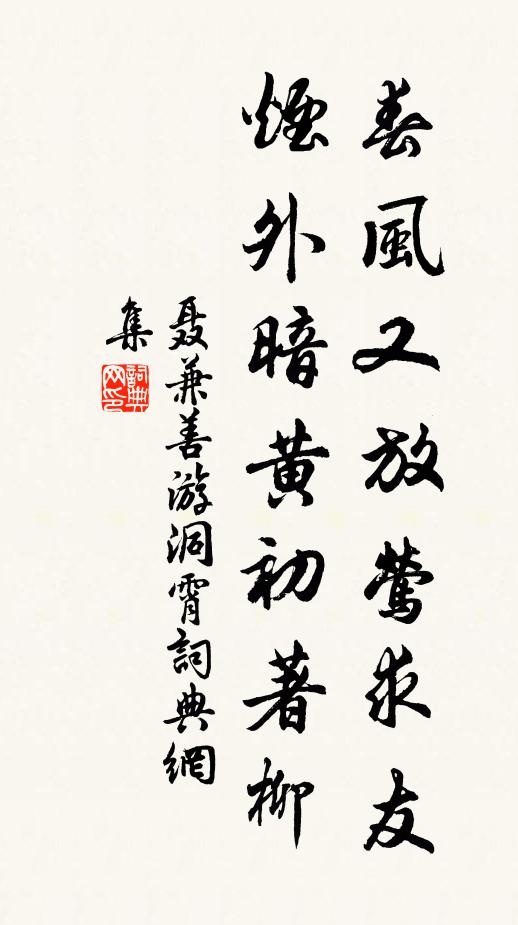 春風又放鶯求友
煙外暗黄初著柳
聂兼善游洞霄詞典網
集
詞典網印